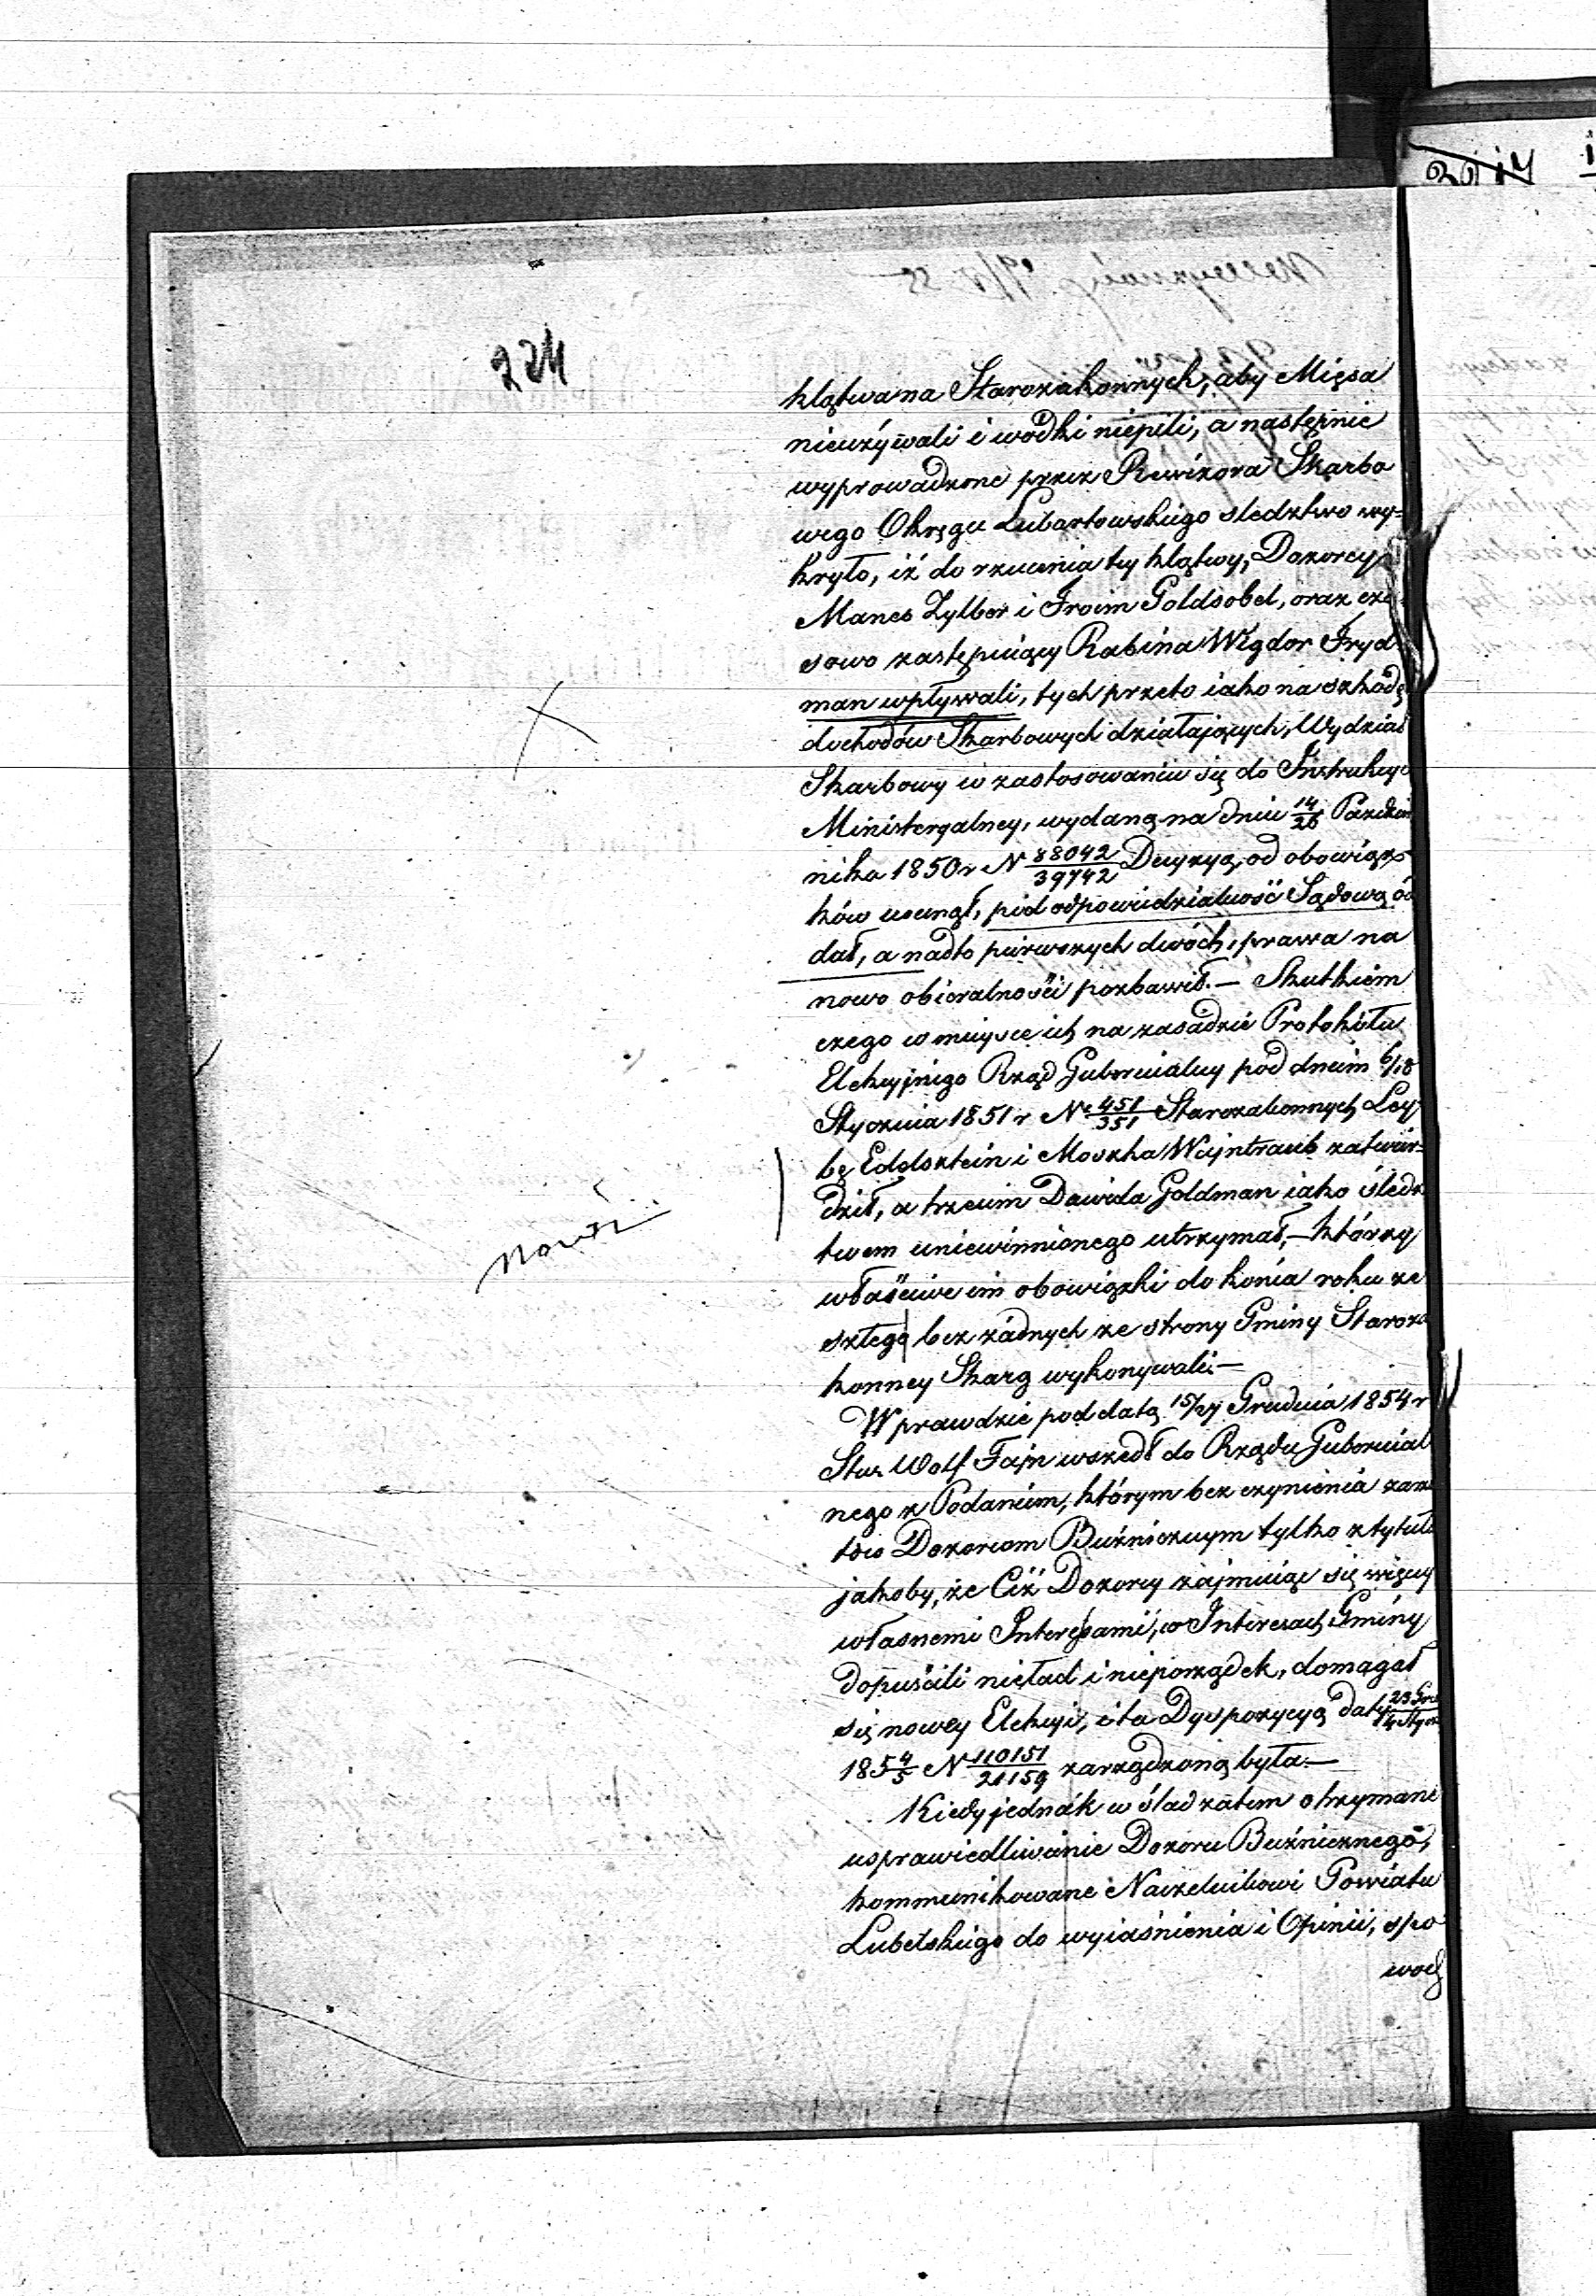 224
klątwa na Starozakonnych, aby Mięsa
nieużywali i wódki niepili, a następnie
wyprowadzone przez Rewizora Skarbo
wego Okręgu Lubartowskiego sledztwo wy=
kryło, iż do rzucenia tey klątwy, Dozorcy
Manes Zylber i Froim Goldsobel, oraz cza
sowo zastępuiący Rabina Wigdor Fryd
man wpływali, tych przeto iako na szkodę
dochodów Skarbowych działających, Wydział
Skarbowy w zastosowaniu się do Instrukcyi
Ministeryalney, wydaną na dniu 14/26 Paździer
nika 1850 r N 88042/39742 Decyzyą od obowiąz
ków usunął, pod odpowiedzialność Sądową od
dał, a nadto pierwszych dwóch, prawa na
nowo obieralności pozbawił. — Skutkiem
czego w mieysce ich na zasadzie Protokółu
Elekcyjnego Rząd Gubernialny pod dniem 6/18
Stycznia 1851 r No 451/351 Starozakonnych Ley
bę Edelsztein i Moszka Wajntraub zatwier=
dził, a trzecim Dawida Goldman iako śledz
twem uniewinnionego utrzymał, — którzy
właściwe im obowiązki do końca roku ze
szłego bez żadnych ze strony Gminy Staroza
konney Skarg wykonywali. —
nowi
Wprawdzie pod datą 15/27 Grudnia 1854 r
Wolf Fajn wszedł do Rządu Gubernial
nego z Podaniem, którym bez czynienia zarzu
tów Dozorcom Bużniczym tylko z tytułu
jakoby, że Ciż Dozorcy zajmuiąc się więcey
własnemi Interesami, w Interesach Gminy
dopuścili nieład i nieporządek, domagał
się nowey Elekcyi, i ta Dyspozycyą daty 23 Gru/4 Stycz
185 4/5 N 110151/21159 zarządzoną była. —
Kiedy jednak w ślad zatem otrzymane
usprawiedliwienie Dozoru Bużnicznego,
kommunikowane Naczelnikowi Powiatu
Lubelskiego do wyiaśnienia i Opinii, spo
wod